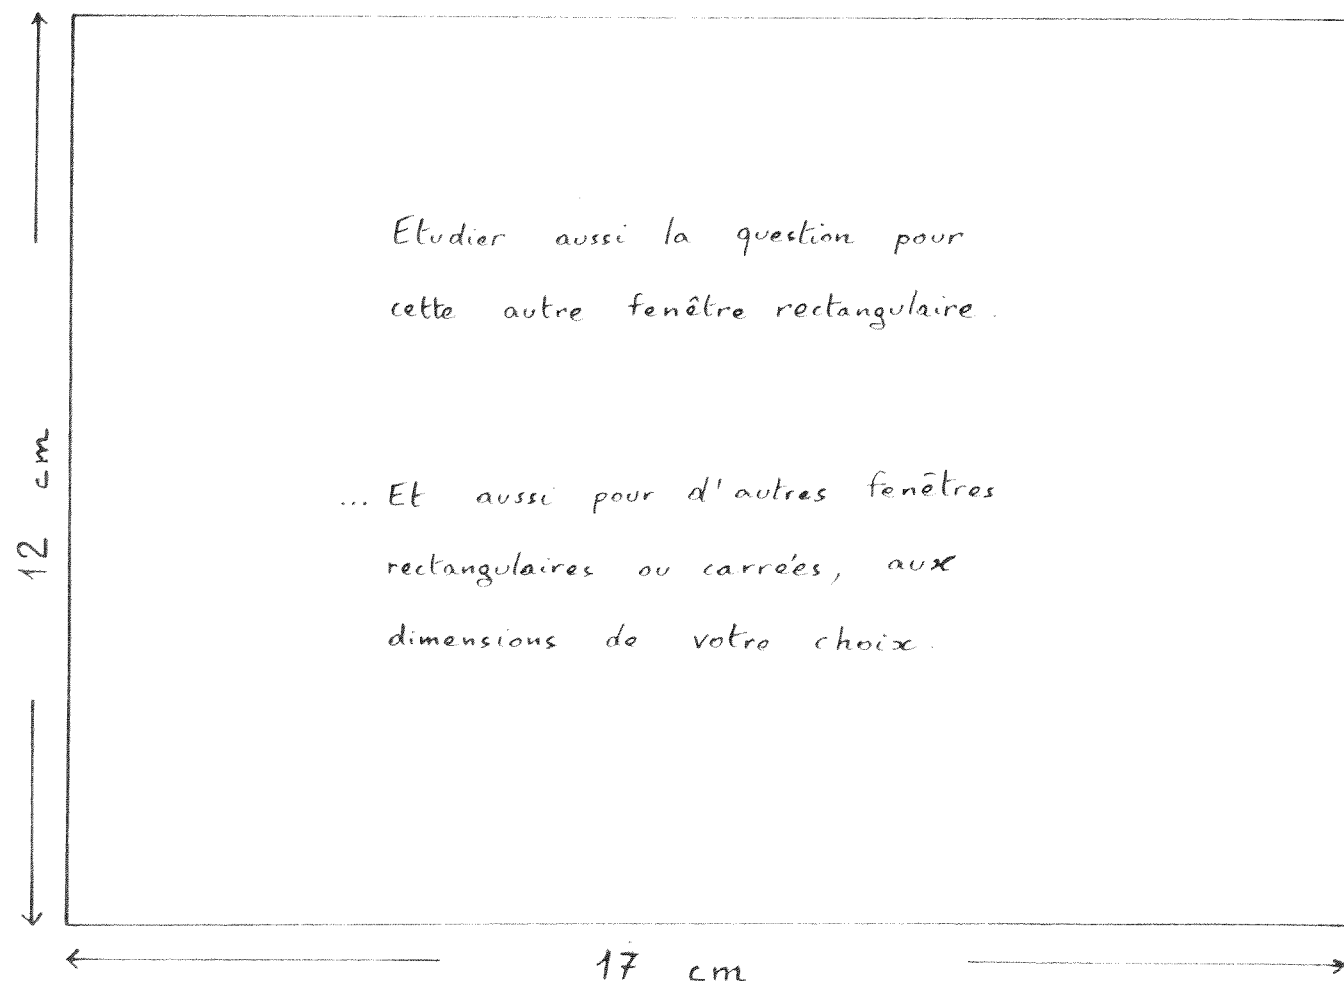 Etudier aussi la question pour
cette autre fenêtre rectangulaire.
... Et aussi pour d'autres fenêtres
rectangulaires ou carrées, aux
dimensions de votre choix.
12 cm
17 cm